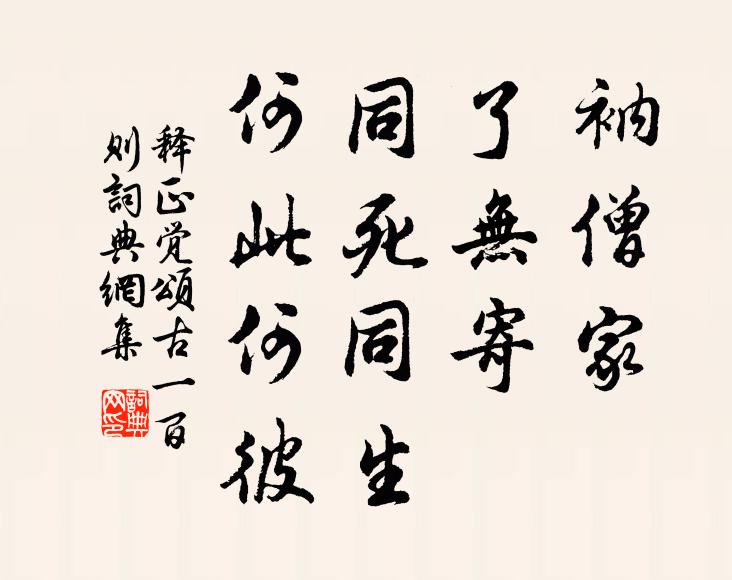 衲僧家
了無寄
同死同生
何此何彼
释正觉頌古一百
则詞典網集
詞典
网印